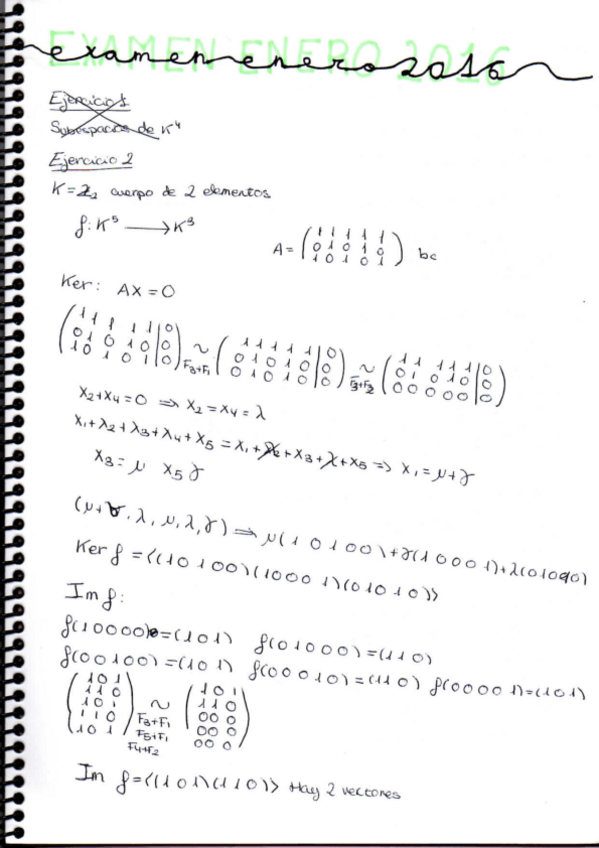 EXAMEN ENERO 2016
examen enero 2016
Ejercicio 1
Subespacios de K⁴
Ejercicio 2
K = Z₂ cuerpo de 2 elementos
f: K⁵ → K³
A = (1 1 1 1 1
0 1 0 1 0
1 0 1 0 1) bc
Ker: AX = 0
(1 1 1 1 1 | 0 ~ F₃+F₁ (1 1 1 1 1 | 0 ~ F₃+F₂ (1 1 1 1 1 | 0
0 1 0 1 0 | 0 0 1 0 1 0 | 0 0 1 0 1 0 | 0
1 0 1 0 1 | 0) 0 1 0 1 0 | 0) 0 0 0 0 0 | 0)
x₂+x₄=0 ⇒ x₂=x₄=λ
x₁+λ₂+λ₃+λ₄+x₅ = x₁+λ+x₃+λ+x₅ ⇒ x₁=μ+γ
x₃=μ x₅ γ
(μ+γ, λ, μ, λ, γ) ⇒ μ(1 0 1 0 0)+γ(1 0 0 0 1)+λ(0 1 0 1 0)
Ker f = ⟨(1 0 1 0 0)(1 0 0 0 1)(0 1 0 1 0)⟩
Im f:
f(1 0 0 0 0)=(1 0 1) f(0 1 0 0 0)=(1 1 0)
f(0 0 1 0 0)=(1 0 1) f(0 0 0 1 0)=(1 1 0) f(0 0 0 0 1)=(1 0 1)
(1 0 1 ~ (1 0 1
1 1 0 F₃+F₁ 1 1 0
1 0 1 F₅+F₁ 0 0 0
1 1 0 F₄+F₂ 0 0 0
1 0 1) 0 0 0)
Im f = ⟨(1 0 1)(1 1 0)⟩ Hay 2 vectores